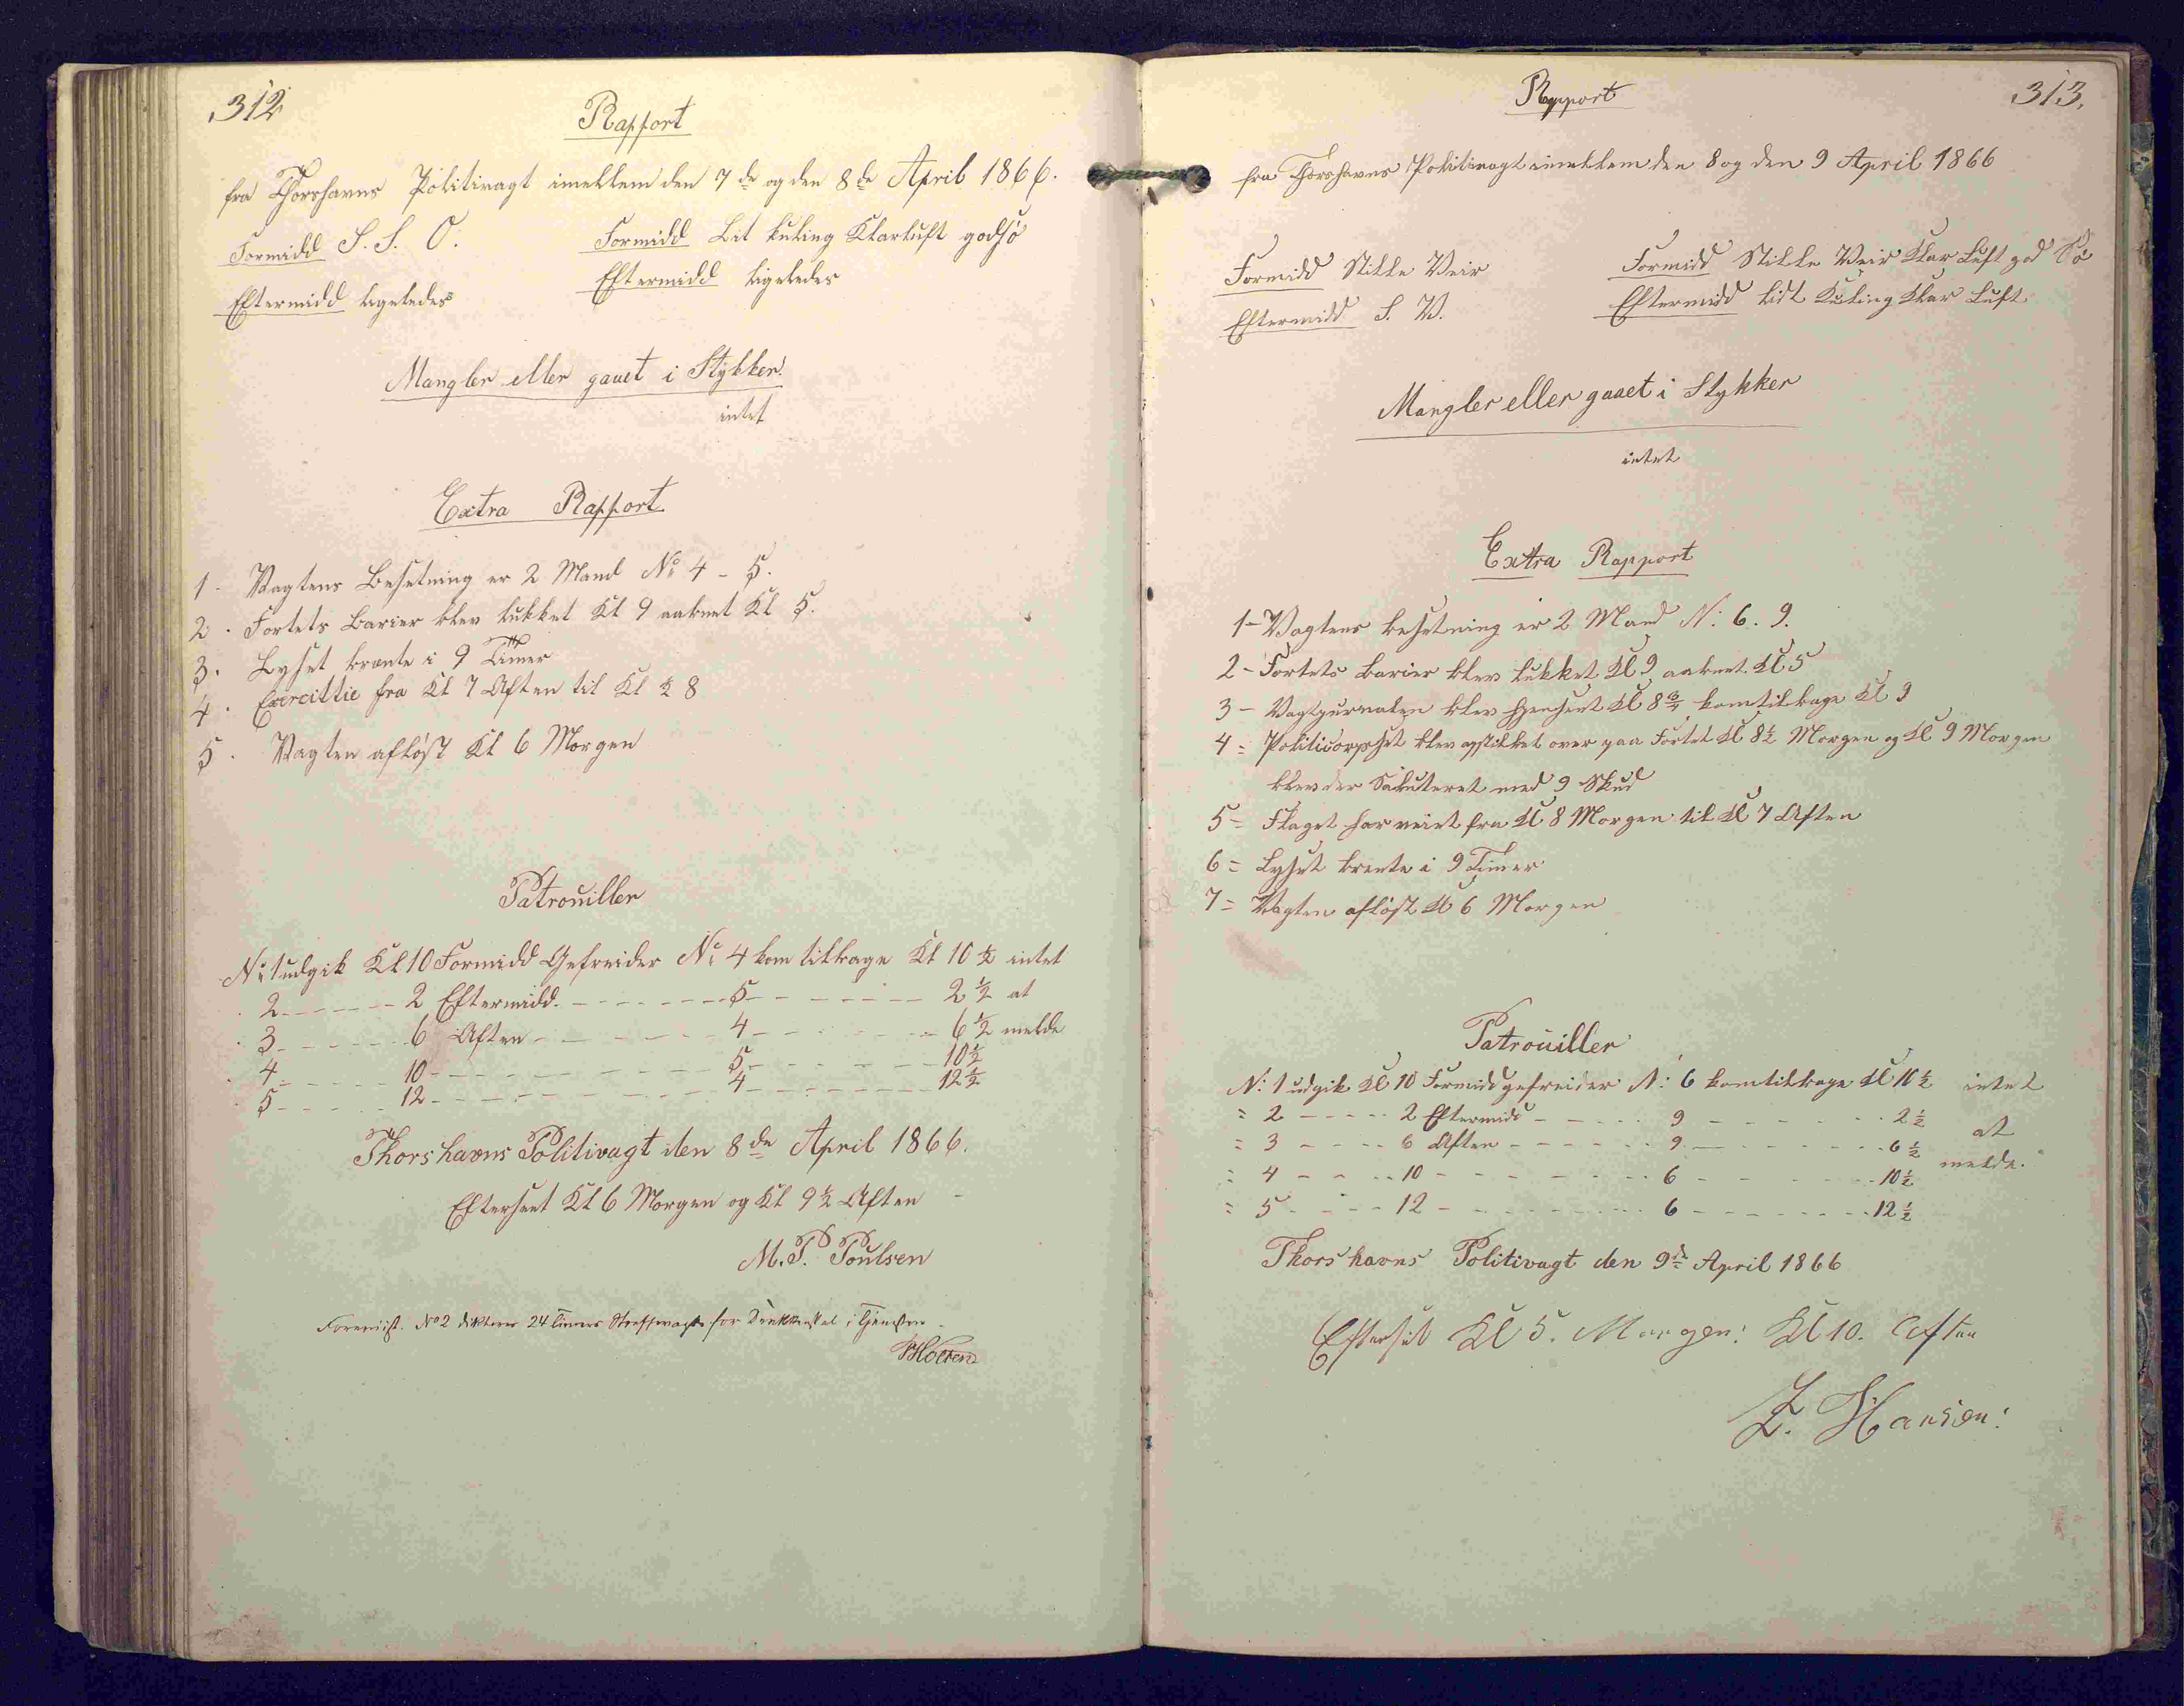 312
Rapport
fra Thorshavns Politivagt imellem den 7de og den 8de April 1866.
Formidd S. S. O.
Formidd Lit kuling Klarluft godsø
Eftermidd ligeledes
Eftermidd ligeledes
Mangler eller gaaet i Stykker
intet
Extra Rapport
1. Vagtens Besetning er 2 Mand No 4 - 5.
2. Fortets Barier blev lukket Kl 9 aabnet Kl 5.
3. Lyset brænte i 9 Timer
4. Exercittie fra Kl 7 Aften til Kl ½ 8
5. Vagten afløst Kl 6 Morgen
Patrouiller
No 1 udgik Kl 10 Formidd Gefreider No 4 kom tilbage Kl 10 ½ intet
2 - - - 2 Eftermidd. - - - 5 - - - 2 ½ at
3 - - - 6 Aften - - - 4 - - - 6 ½ melde
4 - - - 10 - - - 5 - - - 10 ½
5 - - - 12 - - - 4 - - - 12 ½
Thorshavns Politivagt den 8de April 1866.
Efterseet Kl 6 Morgen og Kl 9 ½ Aften
M. P. Poulsen
No 2 dikteres 24 Timers for i Tjenesten
HMüller
313.
Rapport
fra Thorshavns Politivagt imellem den 8 og den 9 April 1866
Formidd Stille Veir
Formidd Stille Veir Klar Luft god Sø
Eftermidd S. V.
Eftermidd lidt Kuling Klar Luft
Mangler eller gaaet i Stykker
intet
Extra Rapport
1 - Vagtens besetning er 2 Mand N: 6. 9.
2 - Fortets Barier blev lukket Kl 9 aabnet Kl 5
3 - Vagtjurnalen blev Kl 8 ¾ kom tilbage Kl 9
4 = Politicorpset blev over paa Fortet Kl 8 ½ Morgen og Kl 9 Morgen
blev der Saluteret med 9 Skud
5 = Flaget har veiet fra Kl 8 Morgen til Kl 7 Aften
6 = Lyset brente i 9 Timer
7 = Vagten afløst Kl 6 Morgen
Patrouiller
N: 1 udgik Kl 10 Formidd gefreider N: 6 kom tilbage Kl 10 ½ intet
= 2 - - - 2 Eftermidd - - - 9 - - - 2 ½ at
= 3 - - - 6 Aften - - - 9 - - - 6 ½ melde.
= 4 - - - 10 - - - 6 - - - 10 ½
= 5 - - - 12 - - - 6 - - - 12 ½
Thorshavns Politivagt den 9de April 1866
Efterset Kl 5. Morgen: Kl 10. Aften
Z. Hansen: